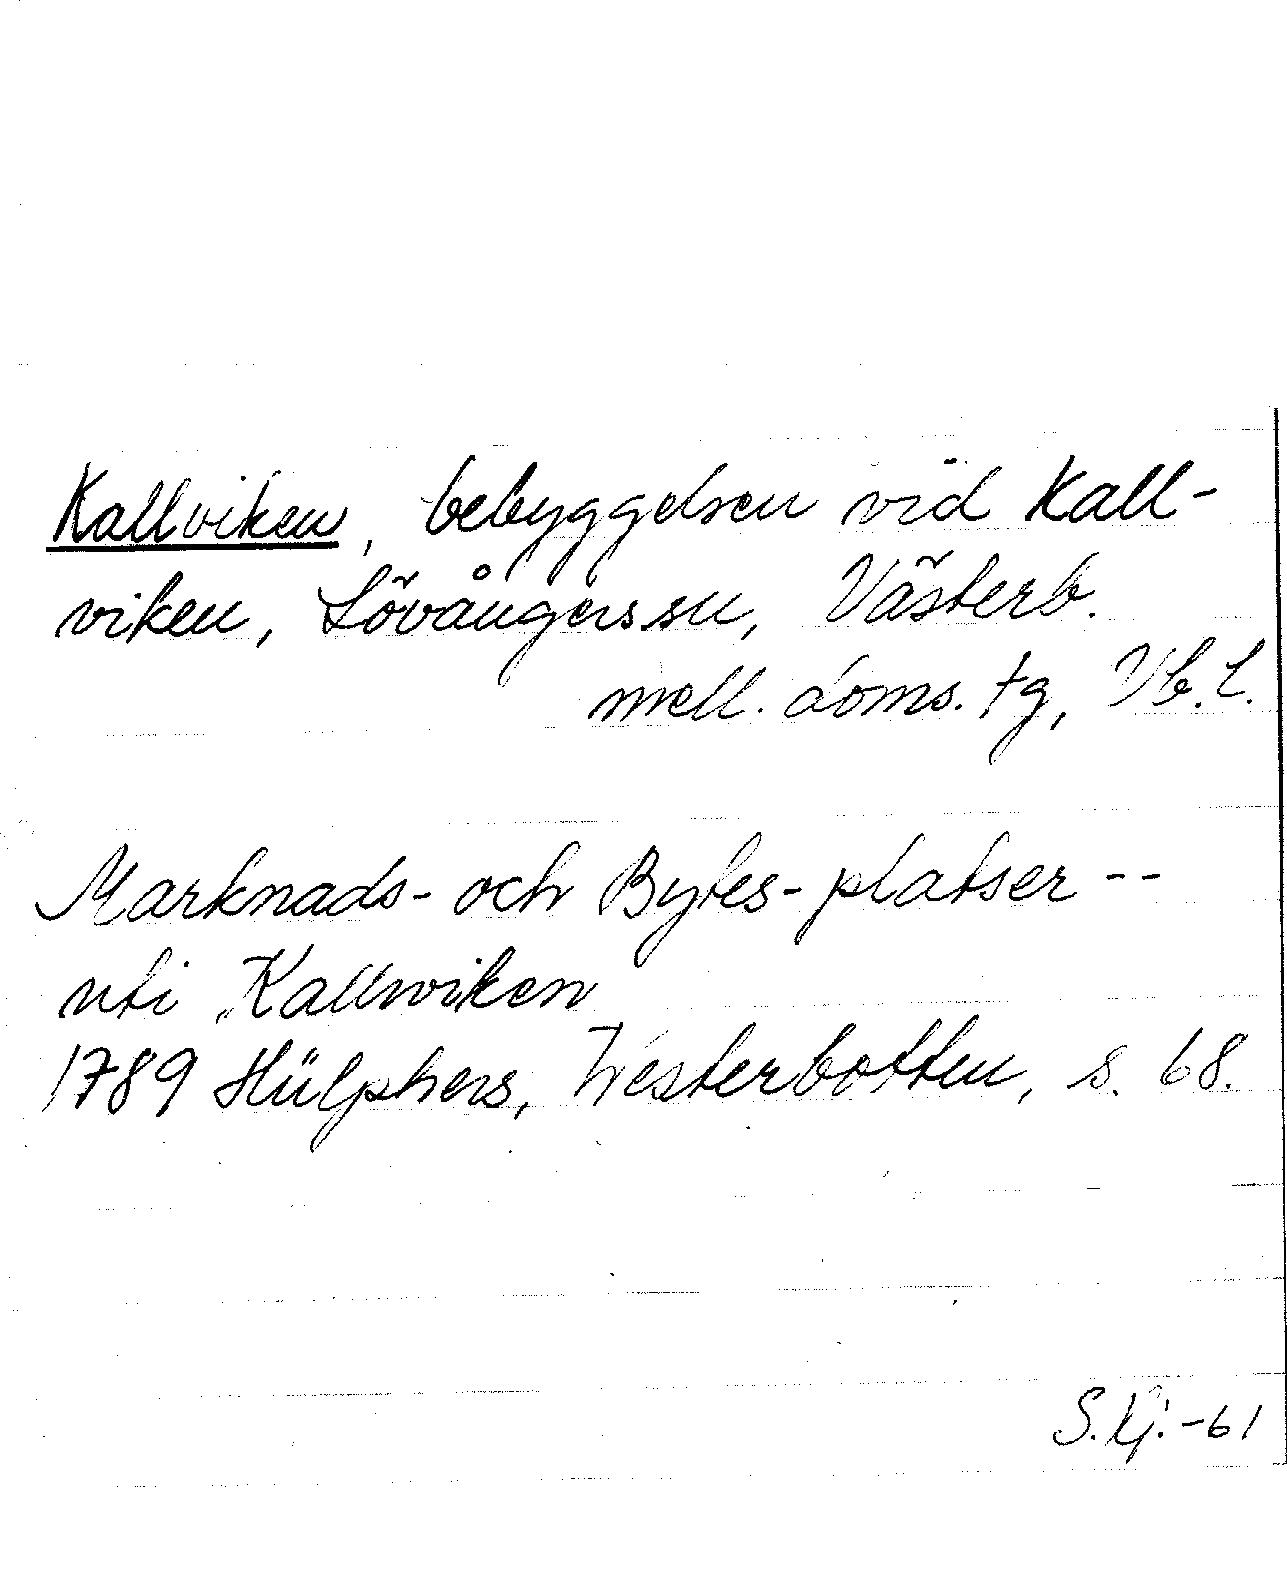 Kallviken, bebyggelsen vid Kall-
viken, Lövångers sn, Västerb.
mell. doms. tg, Vb. l.
Marknads- och Bytes-platser --
uti Kallwiken
1789 Hülphers, Westerbotten, s. 68.
S. Kj. -61